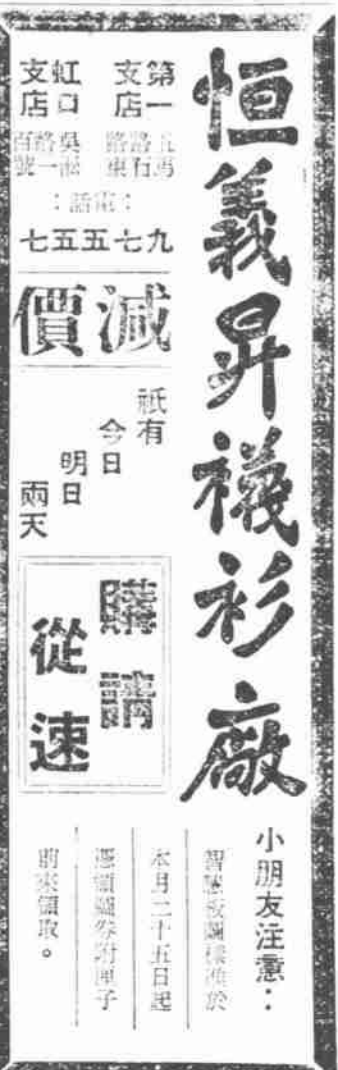 恒義昇襪衫廠
第一支店
五馬路石路東
虹口支店
吳淞路一百號
：電話：
九七五五七
減價
祇有
今日
明日
兩天
購請
從速
小朋友注意：
智慧板圖樣准於
本月二十五日起
憑領圖券附匣子
前來領取。